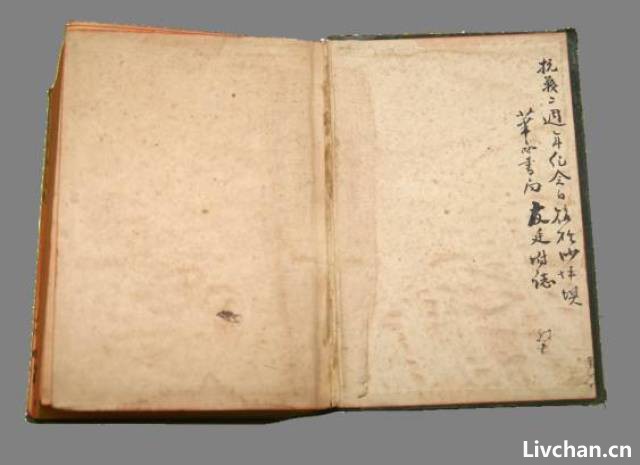 抗战二週年纪念日購於沙坪埧
華西書局 友廷附誌
Livchan.cn